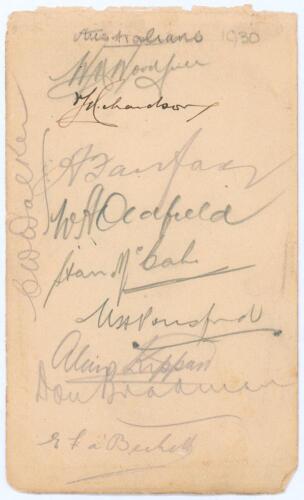 Australians 1930
W M Woodfull
V Y Richardson
C W Walker
A Fairfax
W A Oldfield
Stan McCabe
W H Ponsford
Alan Kippax
Don Bradman
E L a'Beckett